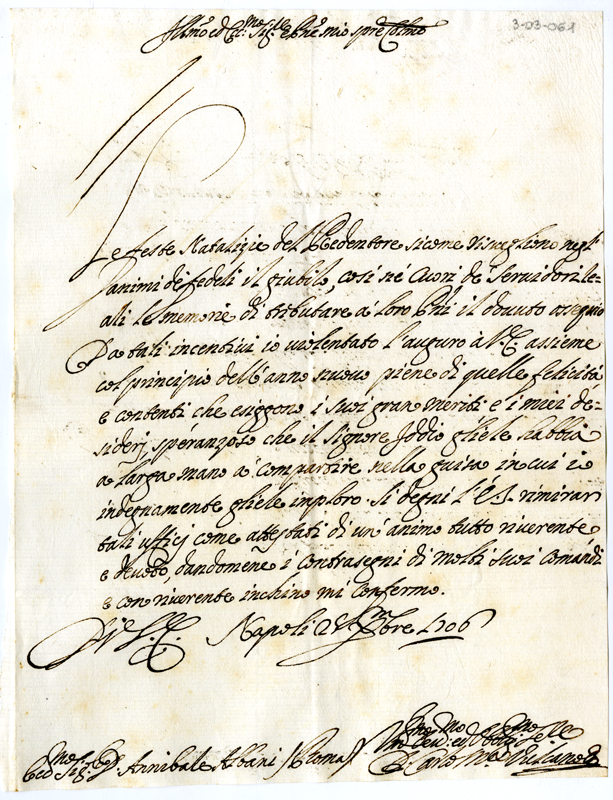 Ill.mo ed Ecc.mo Sig.re e P.ne mio
3-03-061
Le feste Natalizie del Redentore sicome risvegliono negl'
animi de fedeli il giubilo, così ne Cuori de Servidori le=
ali le memorie di tributare a loro P.ni il dovuto ossequio
Da tali incentivi io violentato l'auguro à V.E. assieme
col principio dell'anno nuovo piene di quelle felicità
e contenti che esiggono i suoi gran meriti e i miei de=
siderj, speranzoso che il Signore Iddio gliele habbia
a larga mano a compartire nella guisa in cui io
indegnamente gliele imploro. Si degni l'E.S. rimirar
tali ufficj come attestati di un'animo tutto riverente
e devoto, dandomene i contrasegni di molti suoi comandi
e con riverente inchino mi confermo.
Di V.E. Napoli Xmbre 1706
D. Annibale Albani (Roma)
D. Carlo